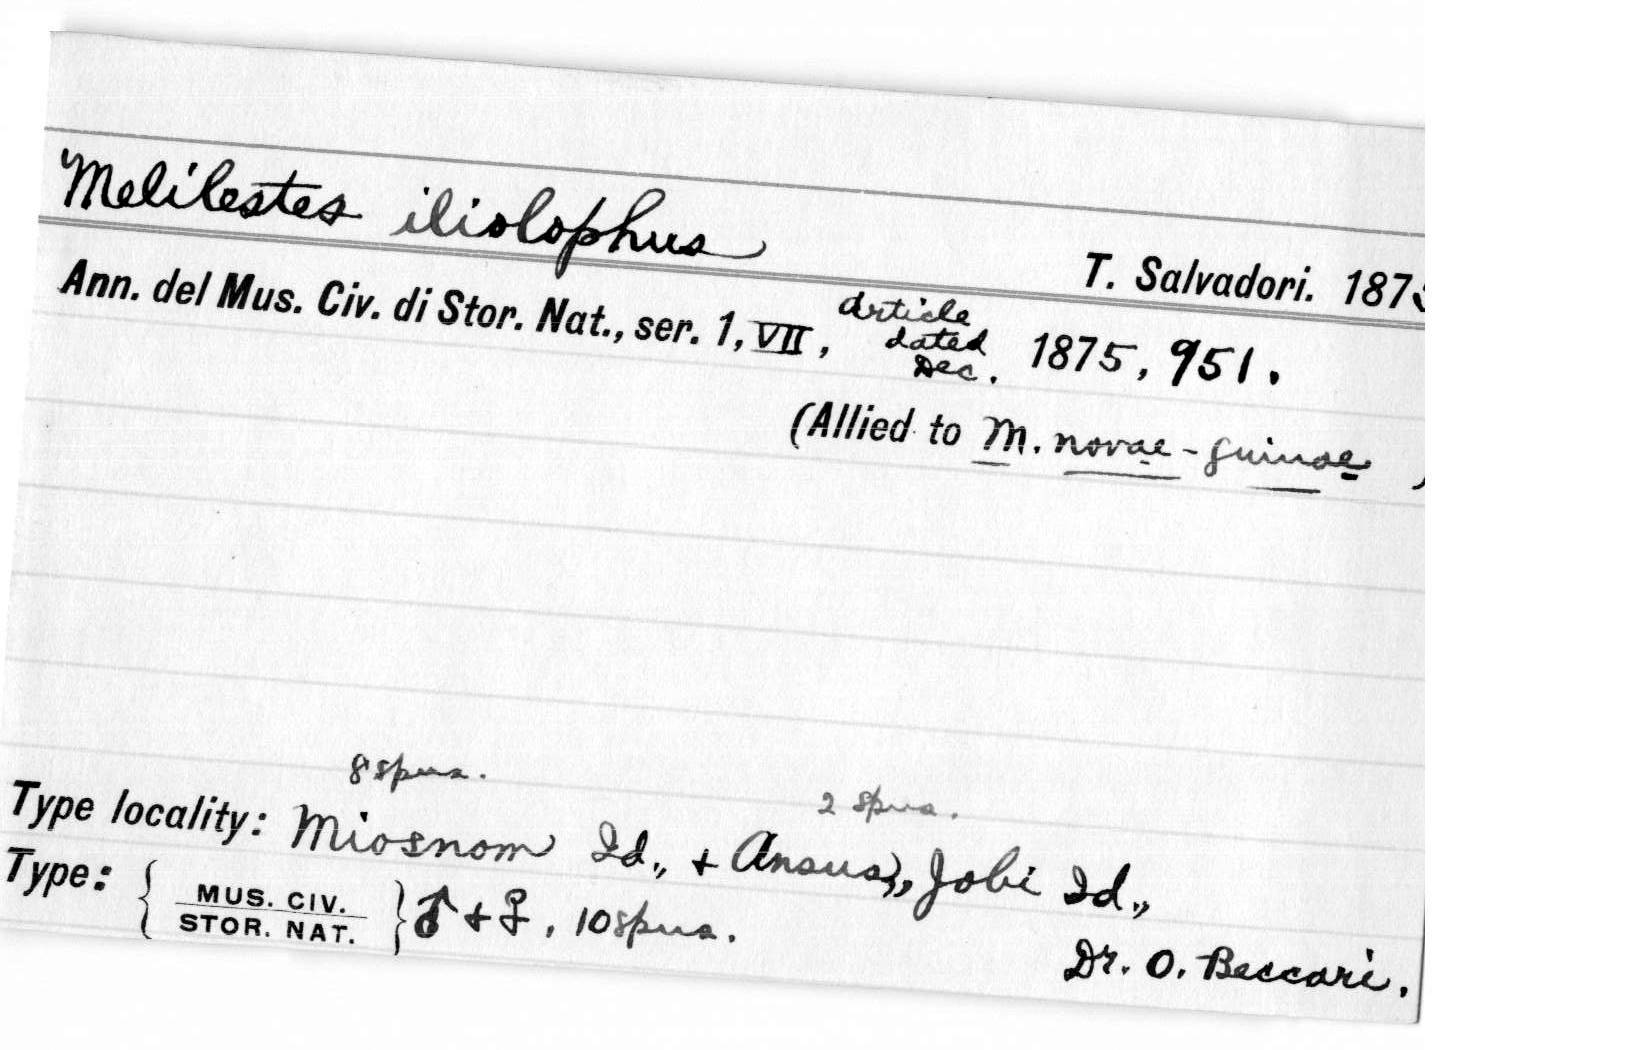 Melilestes iliolophus
T. Salvadori. 1875
Ann. del Mus. Civ. di Stor. Nat., ser. 1, VII, article dated Dec. 1875, 951.
(Allied to M. novae-guinae )
8 spns. 2 spns.
Type locality: Miosnom Id., + Ansus, Jobi Id.,
Type: { MUS. CIV. STOR. NAT. } ♂ + ♀, 10 spns.
Dr. O. Beccari.